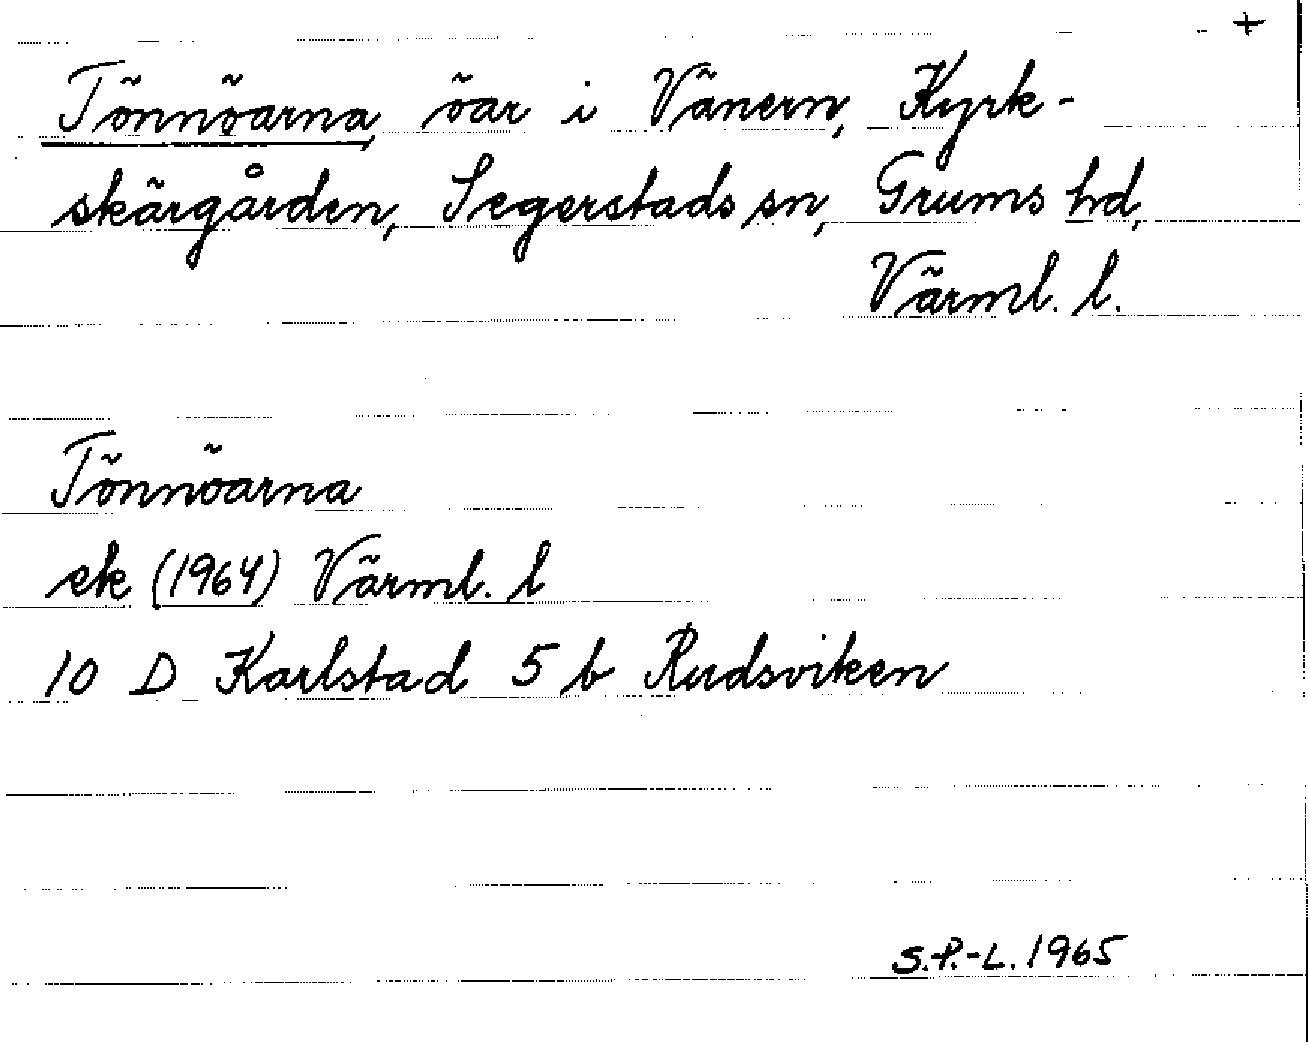 +
Tönnöarna, öar i Vänern, Kyrk-
skärgården, Segerstads sn, Grums hd,
Värml. l.
Tönnöarna
ek (1964) Värml. l
10 D Karlstad 5 b Rudsviken
S.P.-L. 1965